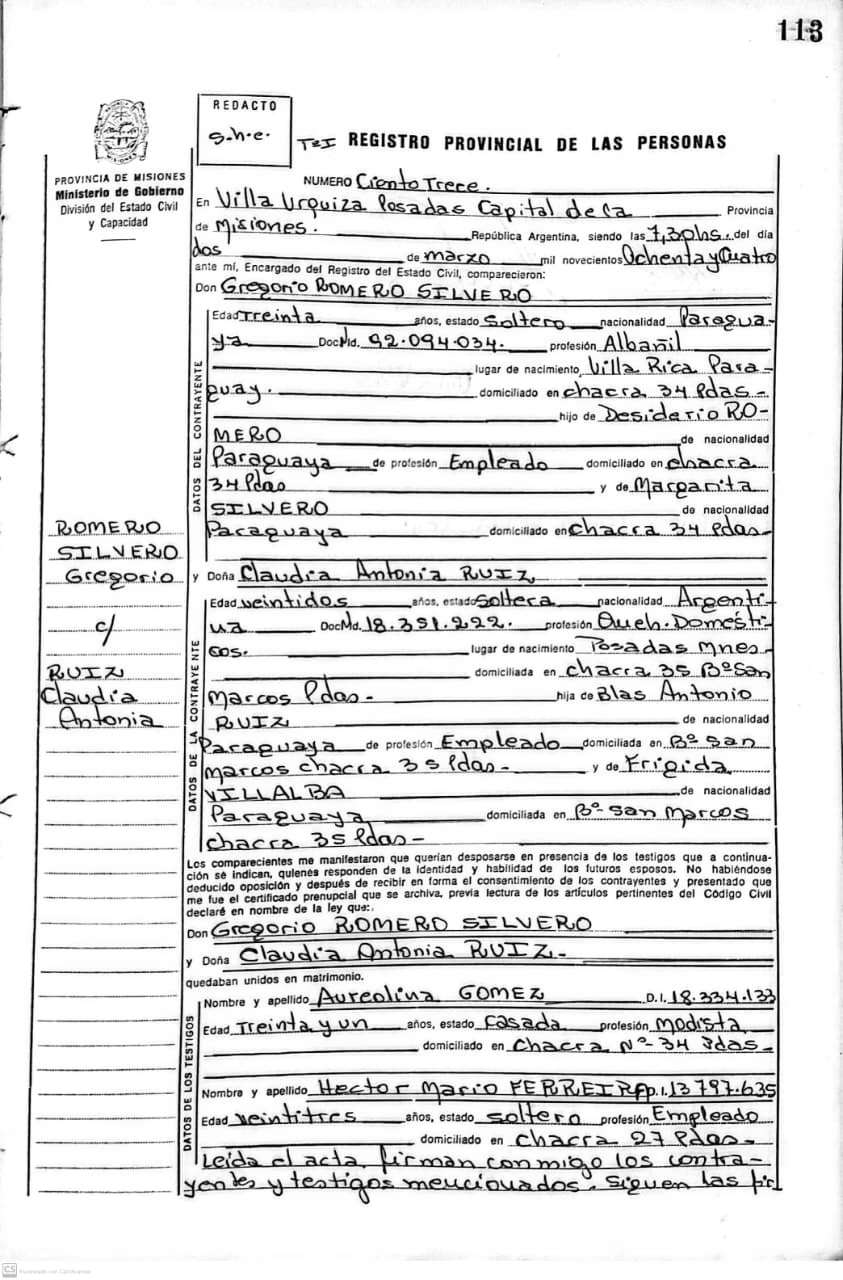 113
REDACTO
s.h.e.
TºI REGISTRO PROVINCIAL DE LAS PERSONAS
PROVINCIA DE MISIONES
Ministerio de Gobierno
División del Estado Civil
y Capacidad
NUMERO Ciento Trece.
En Villa Urquiza Posadas Capital de la Provincia
de Misiones. República Argentina, siendo las 7,30hs. del día
dos de marzo mil novecientos Ochenta y Cuatro
ante mí, Encargado del Registro del Estado Civil, comparecieron:
Don Gregorio ROMERO SILVERO
DATOS DEL CONTRAYENTE
Edad Treinta años, estado Soltero nacionalidad Paragua-
ya Doc Nd. 92.094.034. profesión Albañil
lugar de nacimiento Villa Rica Para-
guay. domiciliado en chacra 34 Pdas-
hijo de Desiderio RO-
MERO de nacionalidad
Paraguaya de profesión Empleado domiciliado en chacra
34 Pdas y de Margarita
SILVERO de nacionalidad
Paraguaya domiciliado en chacra 34 Pdas-
ROMERO
SILVERO
Gregorio
c/
RUIZ
Claudia
Antonia
y Doña Claudia Antonia RUIZ
DATOS DE LA CONTRAYENTE
Edad veintidos años, estado soltera nacionalidad Argenti-
na Doc Nd. 18.351.222. profesión Queh. Domésti-
cos. lugar de nacimiento Posadas Mnes
domiciliada en chacra 35 Bº San
Marcos Pdas- hija de Blas Antonio
RUIZ de nacionalidad
Paraguaya de profesión Empleado domiciliada en Bº San
Marcos chacra 35 Pdas- y de Frigida
VILLALBA de nacionalidad
Paraguaya domiciliada en Bº San Marcos
chacra 35 Pdas-
Los comparecientes me manifestaron que querían desposarse en presencia de los testigos que a continua-
ción se indican, quienes responden de la identidad y habilidad de los futuros esposos. No habiéndose
deducido oposición y después de recibir en forma el consentimiento de los contrayentes y presentado que
me fue el certificado prenupcial que se archiva, previa lectura de los artículos pertinentes del Código Civil
declaré en nombre de la ley que:
Don Gregorio ROMERO SILVERO
y Doña Claudia Antonia RUIZ.-
quedaban unidos en matrimonio.
DATOS DE LOS TESTIGOS
Nombre y apellido Aureolina GOMEZ D.I. 18.334.133
Edad Treinta y un años, estado Casada profesión Modista
domiciliado en Chacra Nº-34 Pdas-
Nombre y apellido Hector Mario FERREIRA D.I. 13797.635
Edad veintitres años, estado soltero profesión Empleado
domiciliado en chacra 27 Pdas-
Leída el acta, firman conmigo los contra-
yentes y testigos mencionados. Siguen las fir
CS